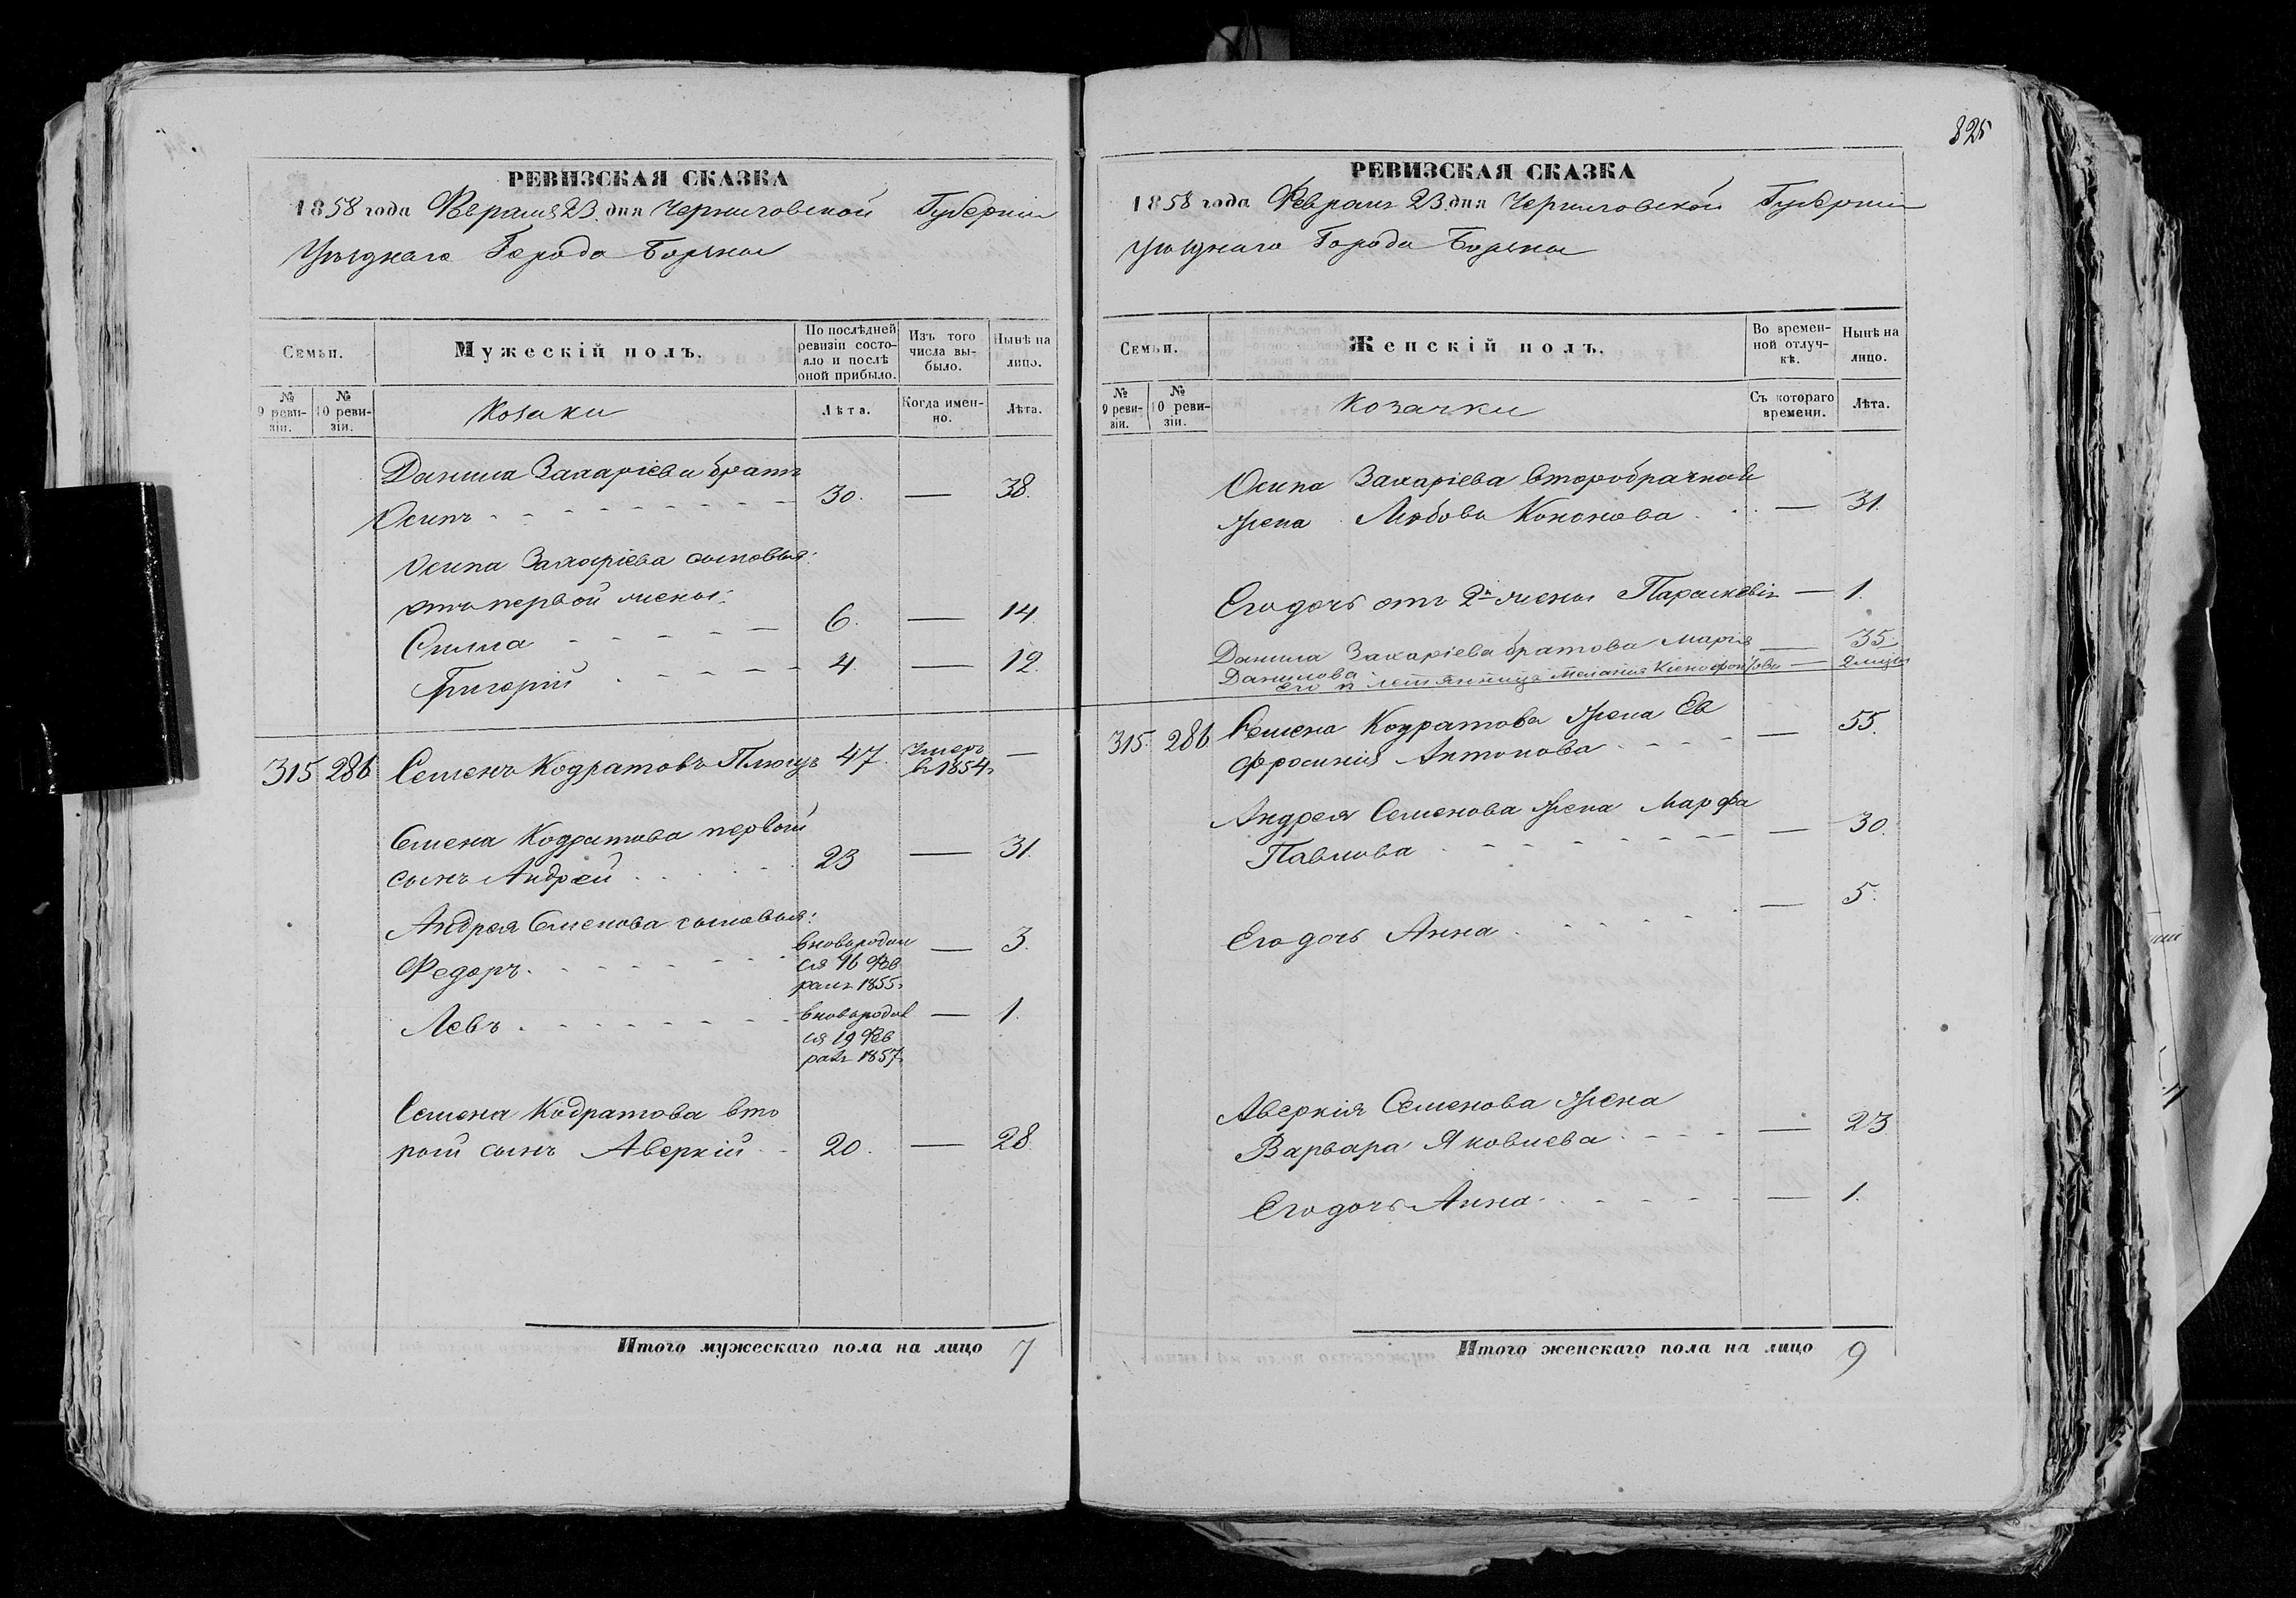 825
РЕВИЗСКАЯ СКАЗКА
1858 года Февраля 23 дня Черниговской Губерніи
Уѣзднаго Города Борзны
Семьи.
Мужескій полъ.
По послѣдней ревизіи состояло и послѣ оной прибыло.
Изъ того числа выбыло.
Нынѣ на лицо.
№ 9 ревизіи.
№ 10 ревизіи.
Козаки
Лѣта.
Когда именно.
Лѣта.
Данила Захаріева братъ
Осипъ 30. — 38.
Осипа Захаріева сыновья:
отъ первой жены:
6. — 14.
Григорій 4. — 12.
315 286 Семенъ Кодратовъ 47. умеръ в 1854 г —
Семена Кодратова первой
сынъ Андрей 23 — 31.
Андрея Семенова сыновья:
Федоръ вновородил — 3.
ся 16 Фев
раля 1855 г
Левъ вновородил — 1.
ся 19 Фев
раля 1857 г
Семена Кодратова вто
рой сынъ Аверкій 20. — 28.
Итого мужескаго пола на лицо 7
РЕВИЗСКАЯ СКАЗКА
1858 года Февраля 23 дня Черниговской Губерніи
Уѣзднаго Города Борзны
Семьи.
Женскій полъ.
Во временной отлучкѣ.
Нынѣ на лицо.
№ 9 ревизіи.
№ 10 ревизіи.
Козачки
Съ котораго времени.
Лѣта.
Осипа Захаріева второбрачная
жена Любовь Кононова — 31.
Его дочь отъ 2й жены Параскевія — 1.
Данила Захаріева братова Марія — 35.
Данилова
Меланія — 2 мцы
315. 286 Семена Кодратова жена Ев
фросинія Антонова — 55.
Андрея Семенова жена Марфа
Павлова — 30.
Его дочь Анна — 5.
Аверкія Семенова жена
Варвара Яковлева — 23
Его дочь Анна — 1.
Итого женскаго пола на лицо 9